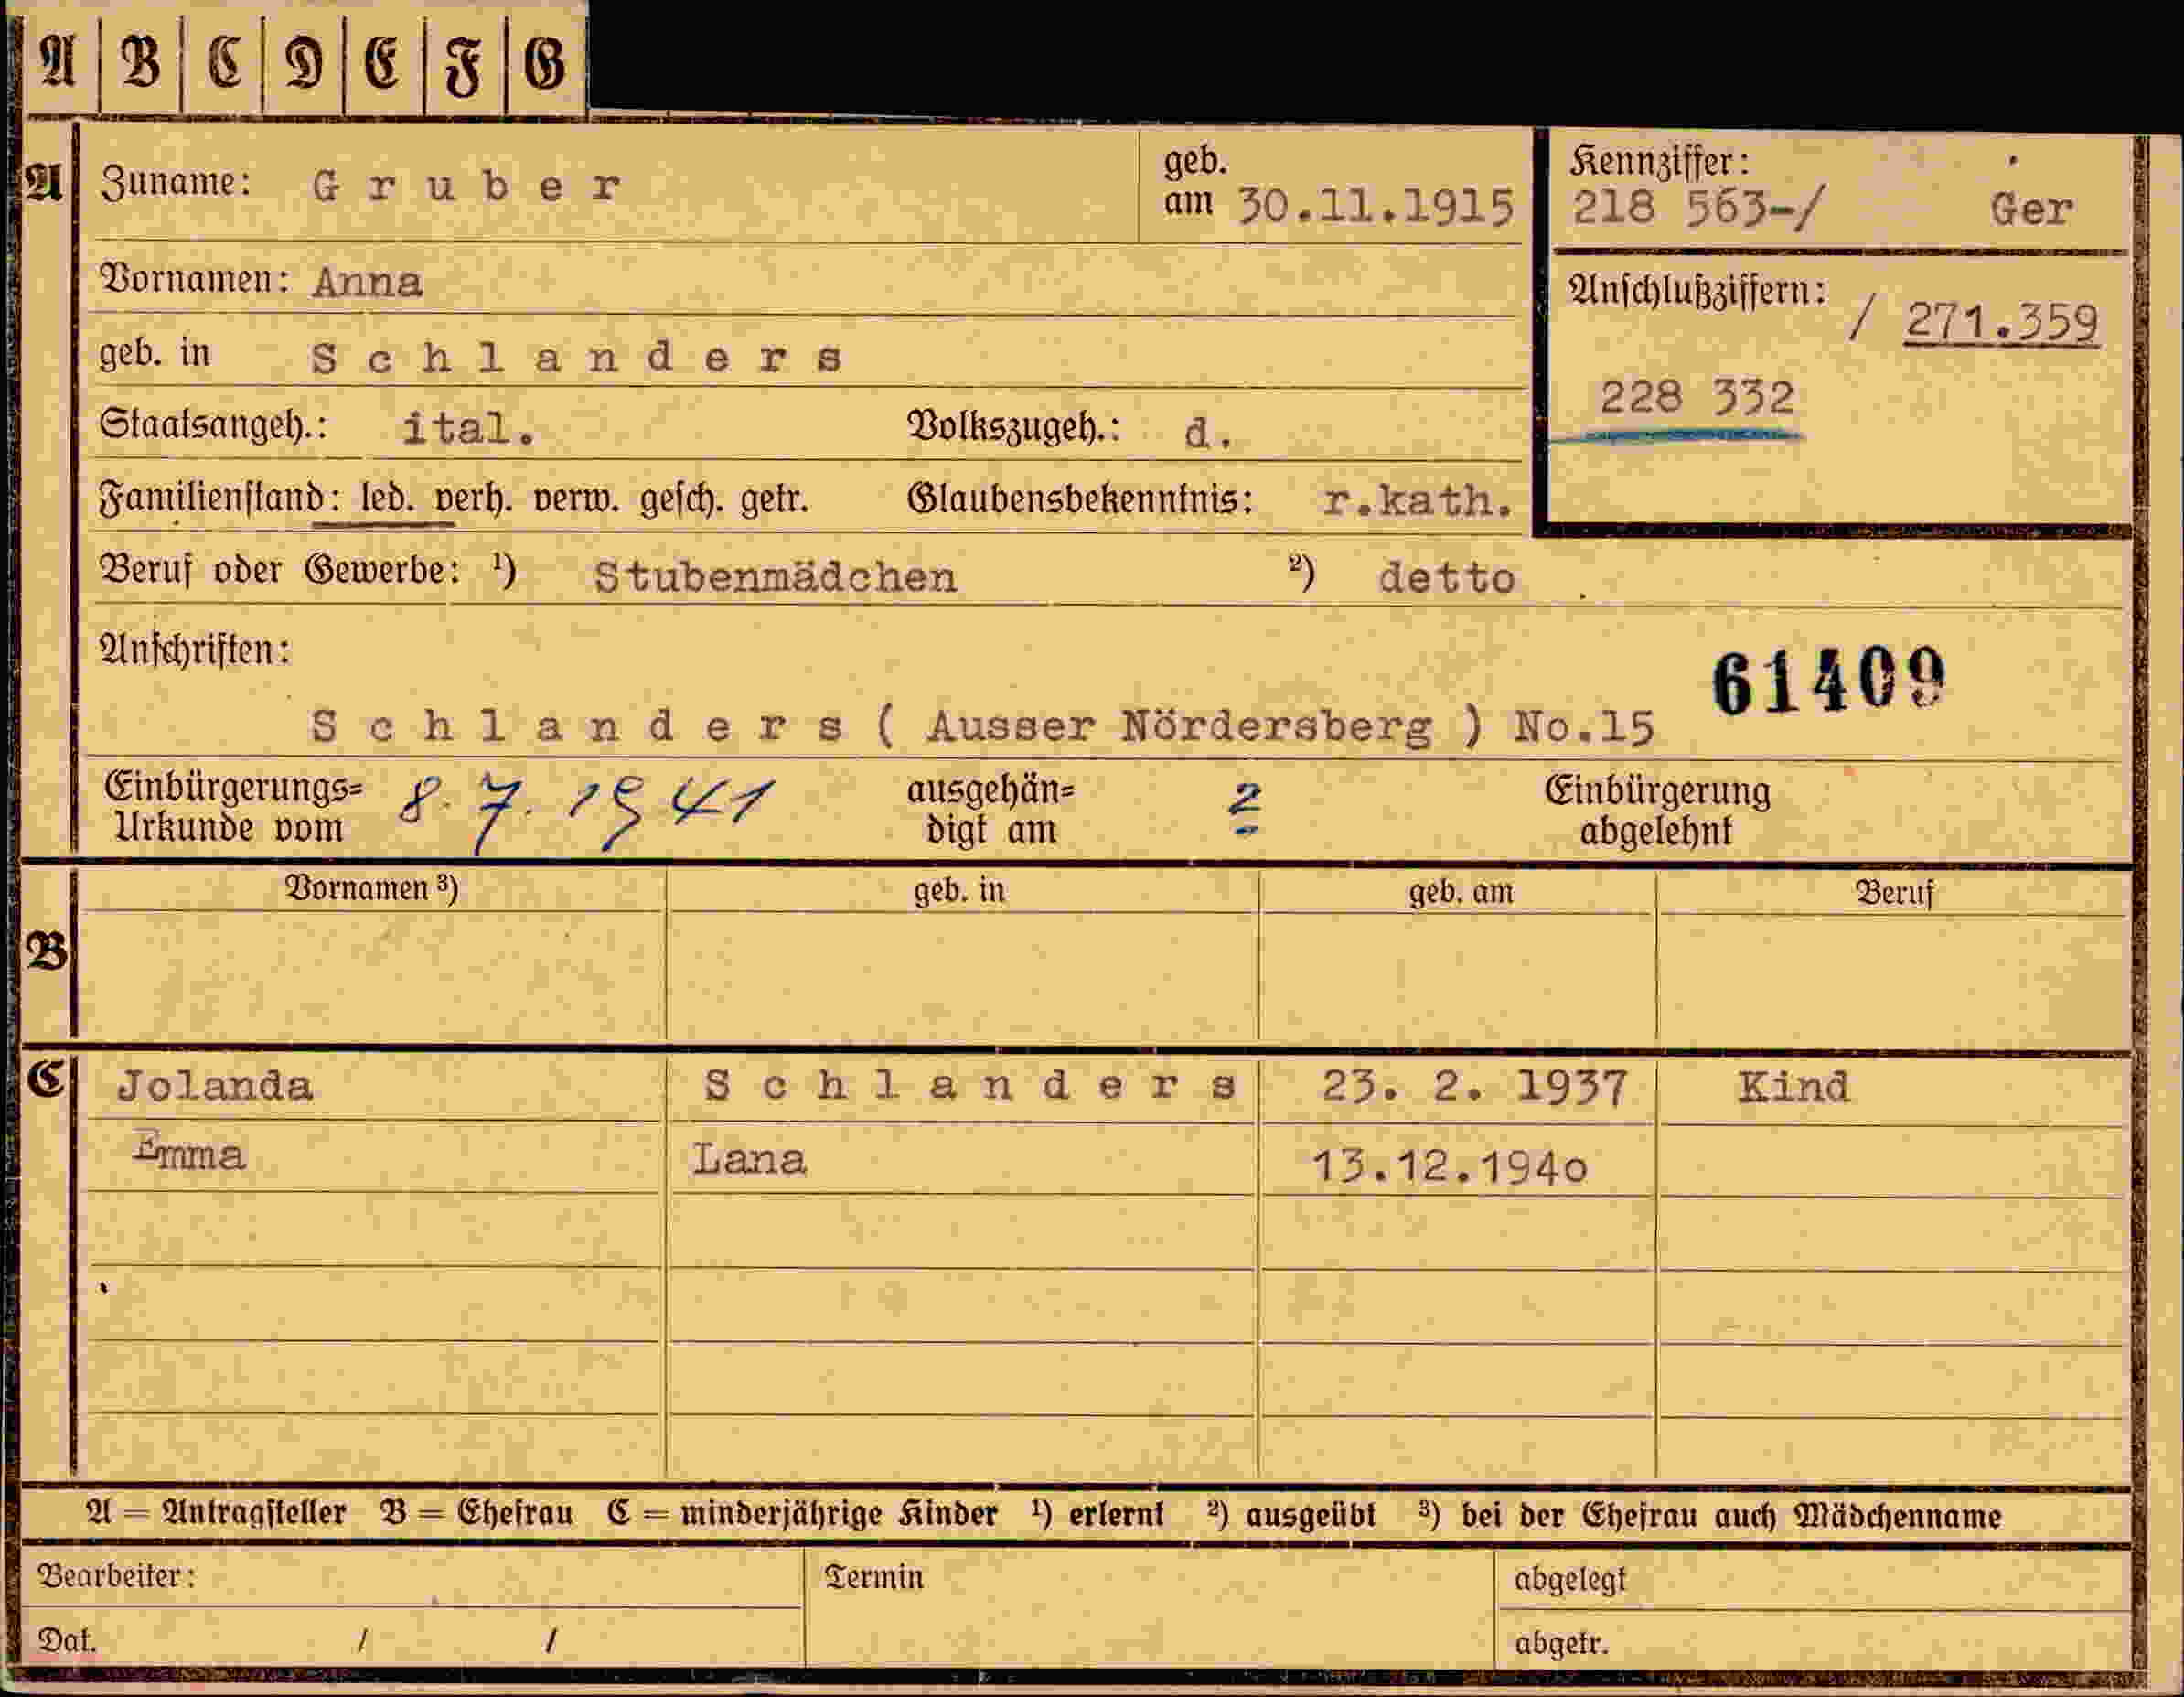 A B C D E F G
A Zuname: Gruber geb. am 30.11.1915 Kennziffer: 218 563-/ Ger
Vornamen: Anna
Anschlußziffern: / 271.359
geb. in Schlanders
228 332
Staatsangeh.: ital. Volkszugeh.: d.
Familienstand: led. verh. verw. gesch. getr. Glaubensbekenntnis: r.kath.
Beruf oder Gewerbe: ¹) Stubenmädchen ²) detto
Anschriften:
61409
Schlanders ( Ausser Nördersberg ) No.15
Einbürgerungs= Urkunde vom 8.7.1941 ausgehän= digt am 2 Einbürgerung abgelehnt
Vornamen ³) geb. in geb. am Beruf
B
C Jolanda Schlanders 23. 2. 1937 Kind
Emma Lana 13.12.194o
A = Antragsteller B = Ehefrau C = minderjährige Kinder ¹) erlernt ²) ausgeübt ³) bei der Ehefrau auch Mädchenname
Bearbeiter: Termin abgelegt
Dat. / / abgetr.